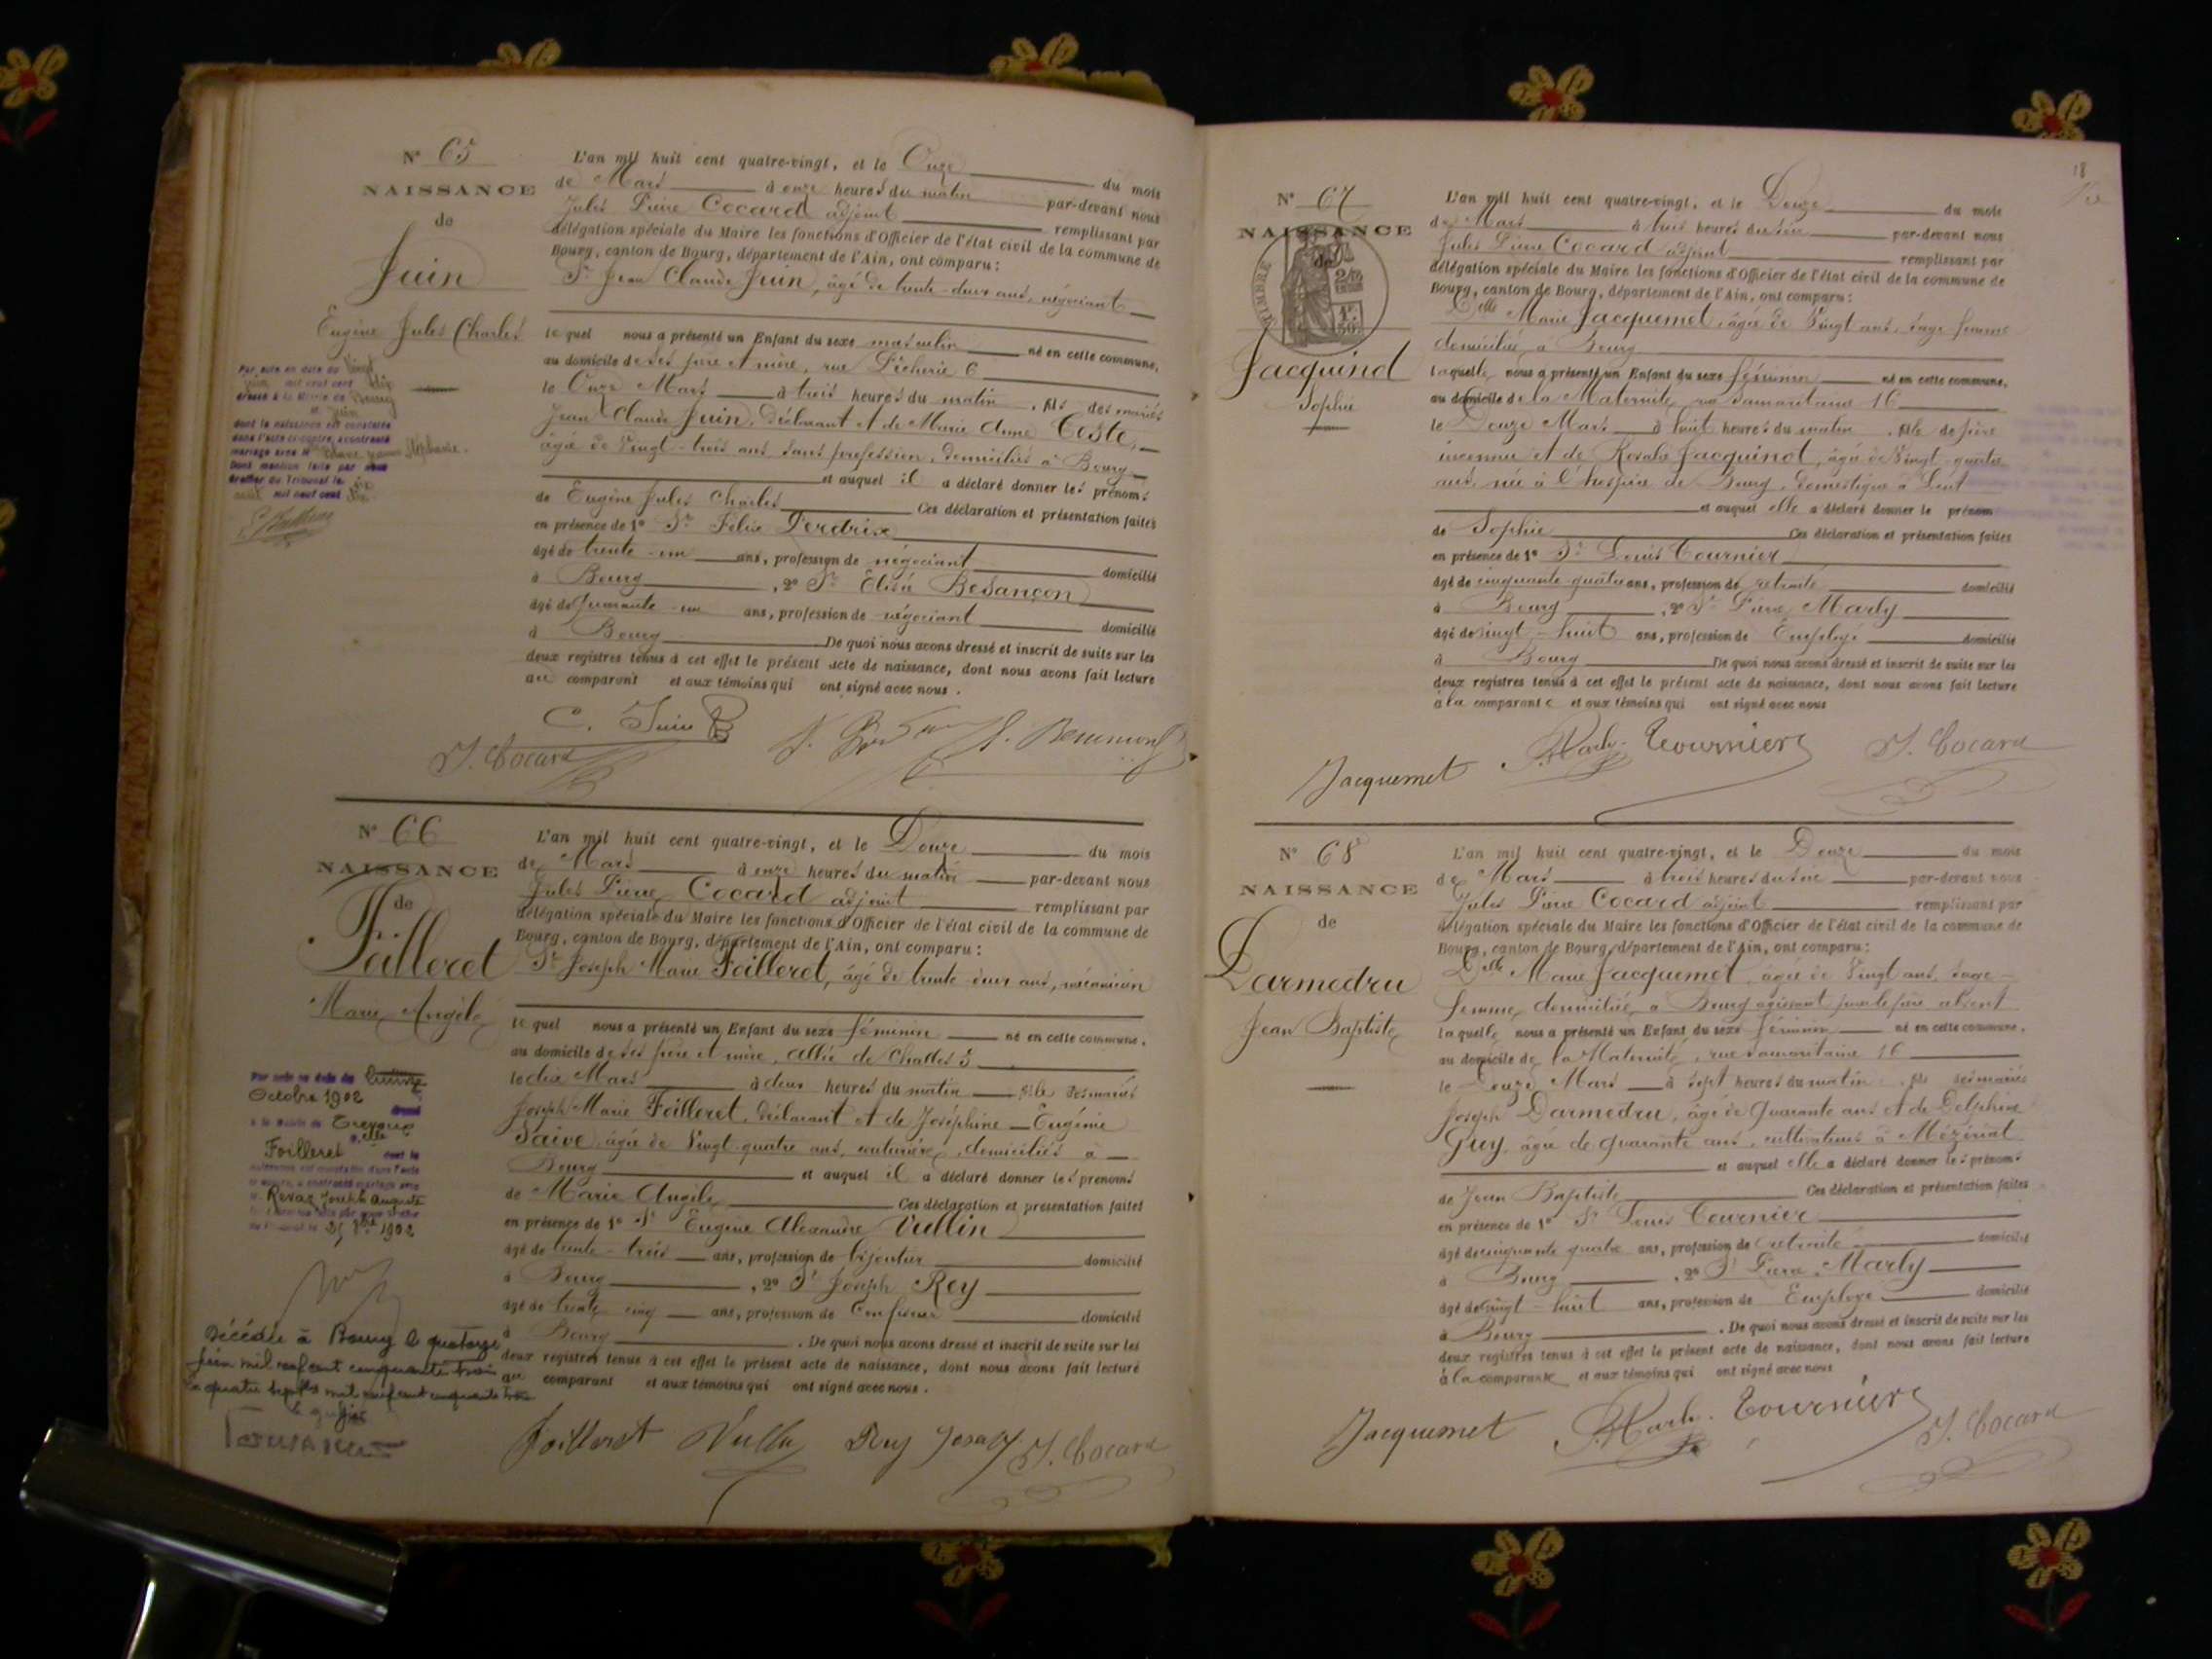 N° 65
NAISSANCE
de
Juin
Eugène Jules Charles
Par acte en date du vingt
juin mil neuf cent dix
dressé à la Mairie de Bourg
M. Juin
dont la naissance est constatée
dans l'acte ci-contre, a contracté
mariage avec M Stéphanie.
Dont mention faite par nous
Greffier du Tribunal le dix
août mil neuf cent dix
L'an mil huit cent quatre-vingt, et le Onze du mois
de Mars à onze heures du matin par-devant nous
Jules Pierre Cocard adjoint remplissant par
délégation spéciale du Maire les fonctions d'Officier de l'état civil de la commune de
Bourg, canton de Bourg, département de l'Ain, ont comparu:
Sr Jean Claude Juin, âgé de trente-deux ans, négociant
lequel nous a présenté un Enfant du sexe masculin né en cette commune,
au domicile de ses père et mère, rue Pêcherie 6
le Onze Mars à trois heures du matin, fils des mariés
Jean Claude Juin, déclarant et de Marie Anne Teste,
âgée de Vingt-trois ans sans profession, domiciliés à Bourg
et auquel il a déclaré donner les prénoms
de Eugène Jules Charles Ces déclaration et présentation faites
en présence de 1° Sr Félix Perdrix
âgé de trente-un ans, profession de négociant domicilié
à Bourg, 2° Sr Elisée Besançon
âgé de quarante-un ans, profession de négociant domicilié
à Bourg De quoi nous avons dressé et inscrit de suite sur les
deux registres tenus à cet effet le présent acte de naissance, dont nous avons fait lecture
au comparant et aux témoins qui ont signé avec nous.
C. Juin
J. Cocard
N° 66
NAISSANCE
de
Foilleret
Marie Angèle
Par acte en date du
Octobre 1902 dressé
à la Mairie de Trévoux
Delle
Foilleret dont la
naissance est constatée dans l'acte
ci-contre, a contracté mariage avec
M. Revaz Joseph Auguste
1902
Décédée à Bourg le quatorze
juin mil neuf cent cinquante trois
Le quatre septbre mil neuf cent cinquante trois
le greffier
L'an mil huit cent quatre-vingt, et le Douze du mois
de Mars à onze heures du matin par-devant nous
Jules Pierre Cocard adjoint remplissant par
délégation spéciale du Maire les fonctions d'Officier de l'état civil de la commune de
Bourg, canton de Bourg, département de l'Ain, ont comparu:
Sr Joseph Marie Foilleret, âgé de trente-deux ans, mécanicien
lequel nous a présenté un Enfant du sexe féminin né en cette commune,
au domicile de ses père et mère, allée de Challes 5
le dix Mars à deux heures du matin fille des mariés
Joseph Marie Foilleret, déclarant et de Joséphine Eugénie
Saive âgée de Vingt-quatre ans, couturière, domiciliés à
Bourg et auquel il a déclaré donner les prénoms
de Marie Angèle Ces déclaration et présentation faites
en présence de 1° Sr Eugène Alexandre Vullin
âgé de trente-trois ans, profession de bijoutier domicilié
à Bourg, 2° Sr Joseph Rey
âgé de trente cinq ans, profession de Confiseur domicilié
à Bourg. De quoi nous avons dressé et inscrit de suite sur les
deux registres tenus à cet effet le présent acte de naissance, dont nous avons fait lecture
au comparant et aux témoins qui ont signé avec nous.
Foilleret Vullin Rey Joseph J. Cocard
18
N° 67
NAISSANCE
de
TIMBRE
Jacquinod
Sophie
L'an mil huit cent quatre-vingt, et le Douze du mois
de Mars à trois heures du soir par-devant nous
Jules Pierre Cocard adjoint remplissant par
délégation spéciale du Maire les fonctions d'Officier de l'état civil de la commune de
Bourg, canton de Bourg, département de l'Ain, ont comparu:
Delle Marie Jacquemet, âgée de Vingt ans, sage-femme
domiciliée à Bourg
laquelle nous a présenté un Enfant du sexe féminin né en cette commune,
au domicile de la Maternité, rue Samaritaine 16
le Douze Mars à huit heures du matin, fille de père
inconnu et de Rosalie Jacquinot, âgée de Vingt-quatre
ans, née à l'hospice de Bourg, domestique à Lent
et auquel elle a déclaré donner le prénom
de Sophie Ces déclaration et présentation faites
en présence de 1° Sr Louis Tournier
âgé de cinquante-quatre ans, profession de retraité domicilié
à Bourg, 2° Sr Pierre Marly
âgé de vingt-huit ans, profession de Employé domicilié
à Bourg De quoi nous avons dressé et inscrit de suite sur les
deux registres tenus à cet effet le présent acte de naissance, dont nous avons fait lecture
à la comparante et aux témoins qui ont signé avec nous
Jacquemet P. Marly Tournier J. Cocard
N° 68
NAISSANCE
de
Darmedru
Jean Baptiste
L'an mil huit cent quatre-vingt, et le Douze du mois
de Mars à trois heures du soir par-devant nous
Jules Pierre Cocard adjoint remplissant par
délégation spéciale du Maire les fonctions d'Officier de l'état civil de la commune de
Bourg, canton de Bourg, département de l'Ain, ont comparu:
Delle Marie Jacquemet, âgée de Vingt ans, sage-
femme, domiciliée à Bourg agissant pour le père absent
laquelle nous a présenté un Enfant du sexe féminin né en cette commune,
au domicile de la Maternité, rue Samaritaine 16
le Douze Mars à sept heures du matin, fils des mariés
Joseph Darmedru, âgé de quarante ans et de Delphine
Guy, âgée de quarante ans, cultivateurs à Mézériat
et auquel elle a déclaré donner les prénoms
de Jean Baptiste Ces déclaration et présentation faites
en présence de 1° Sr Louis Tournier
âgé de cinquante quatre ans, profession de retraité domicilié
à Bourg, 2° Sr Pierre Marly
âgé de vingt-huit ans, profession de Employé domicilié
à Bourg. De quoi nous avons dressé et inscrit de suite sur les
deux registres tenus à cet effet le présent acte de naissance, dont nous avons fait lecture
à la comparante et aux témoins qui ont signé avec nous
Jacquemet P. Marly Tournier J. Cocard